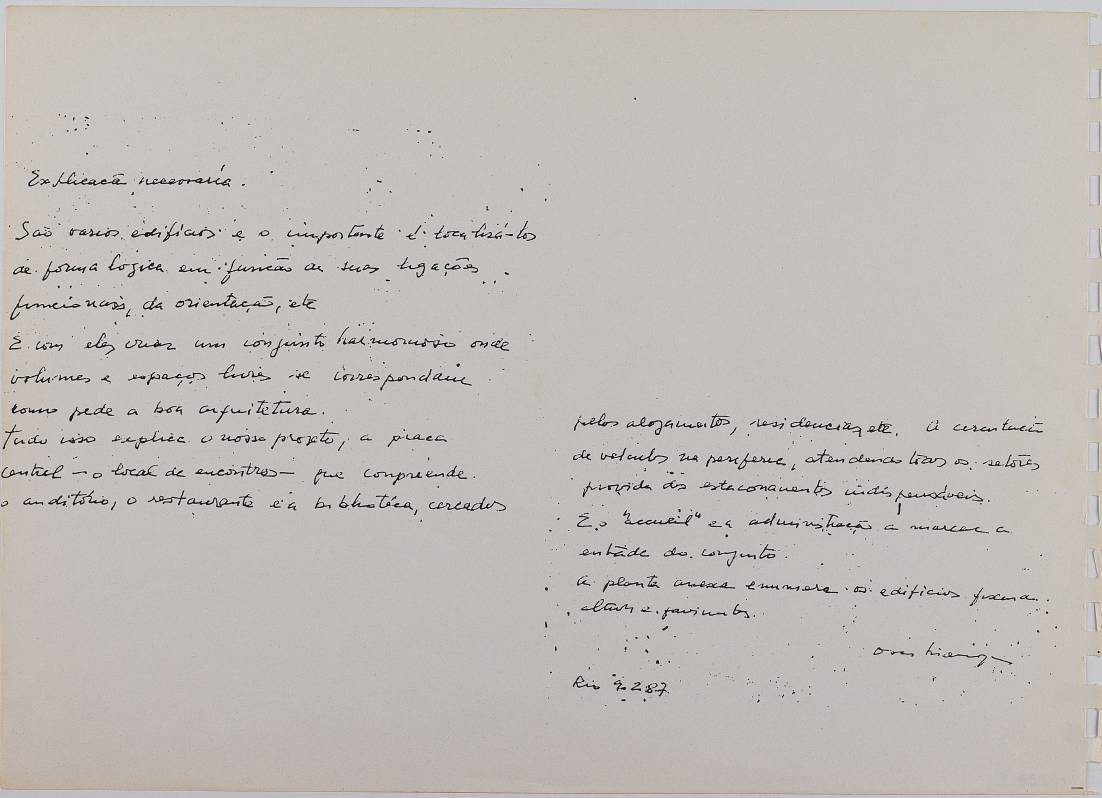 Explicação necessaria.
São varios edificios e o importante é localizá-los
de forma logica em função de suas ligações
funcionais, da orientação, etc
E com eles criar um conjunto harmonioso onde
volumes e espaços livres se correspondam
como pede a boa arquitetura.
Tudo isso explica o nosso projeto, a praça
central – o local de encontros – que compreende
o auditório, o restaurante e a biblioteca, cercados
pelos alojamentos, residencias, etc. A circulação
de veiculos na periferia, atendendo todos os setores
provida dos estacionamentos indispensáveis.
E o "accueil" e a administração a marcar a
entrada do conjunto.
A planta anexa enumera os edificios fixando
alturas e pavimentos.
Oscar Niemeyer
Rio 9.2.87